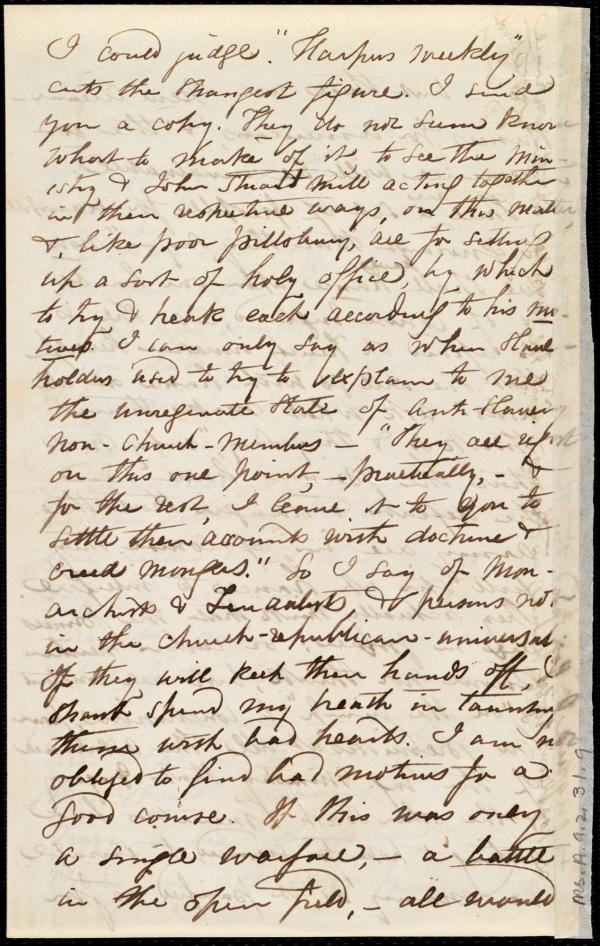 I could judge. "Harpers weekly"
cuts the strangest figure. I send
you a copy. They do not seem know
what to make of it, to see the Min-
istry & John Stuart Mill acting together
in their respective ways, on this matter
&, like poor Pillsbury, are for setting
up a sort of holy office, by which
to try & treat each according to his mo-
tives. I can only say as when Slave
holders used to try to explain to me
the unregenerate State of Anti-Slavery
non-church-members — "They are right
on this one point, — practically, — &
for the rest, I leave it to you to
settle their accounts with doctrine &
creed mongers." So I say of Mon-
archists & Feudalists, & persons not
in the church-republican-universal.
If they will keep their hands off, I
shant spend my breath in taunting
them with bad hearts. I am not
obliged to find bad motives for a
good course. If this was only
a single warfare, — a battle
in the open field, — all would
Ms.A.9.2.31.9